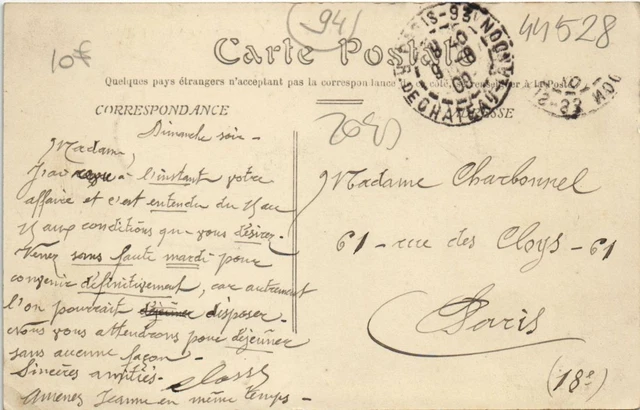 10f
(94)
44528
Carte Postale
Quelques pays étrangers n'acceptant pas la correspondance de ce côté, se renseigner à la Poste
CORRESPONDANCE
ESSE
Dimanche soir -
Madame
J'ai reçu à l'instant votre
affaire et c'est entendu du 15 au
15 aux conditions que vous désirez.
Venez sans faute mardi pour
convenir définitivement, car autrement
l'on pourrait déjeuner disposer.
Nous vous attendrons pour déjeuner
sans aucune façon.
Sincères amitiés.
Amenez Jeanne en même temps -
Madame Charbonnel
61 - rue des Cloys - 61
Paris
(18e)